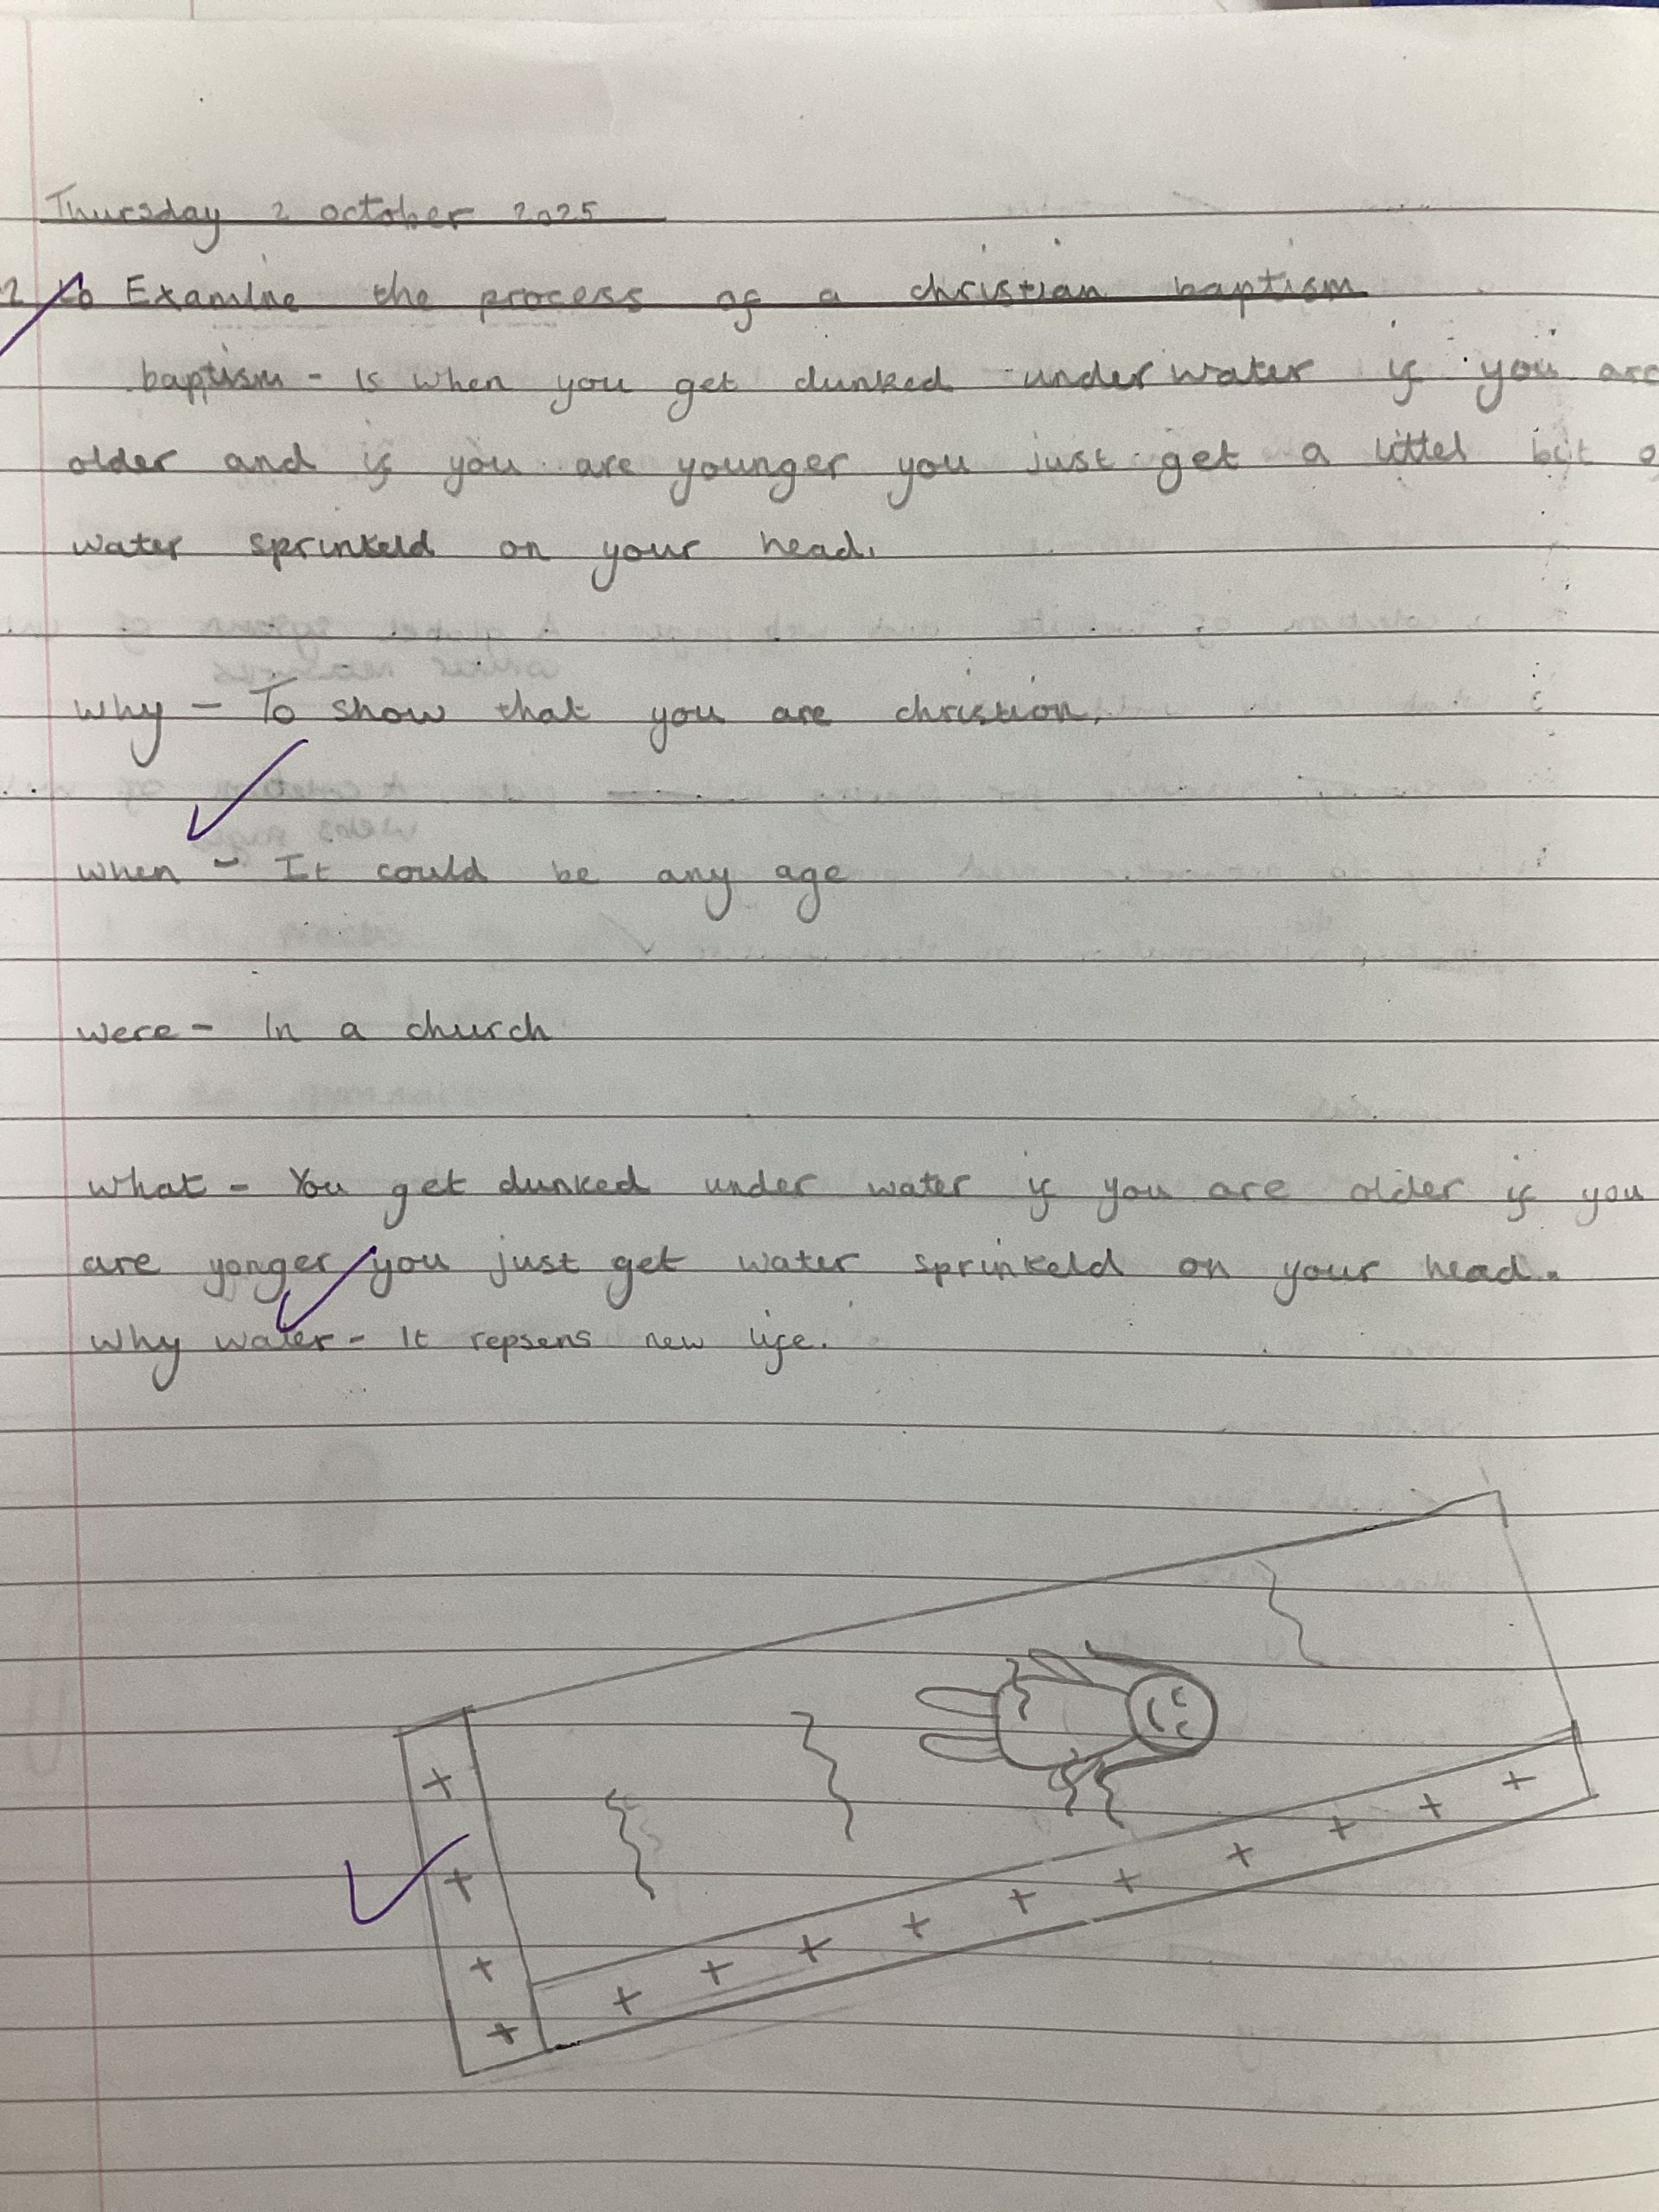 Thursday 2 october 2025
to Examine the process of a christian baptism
baptism - Is when you get dunked under water if you are
older and if you are younger you just get a littel bit
water sprinkeld on your head.
why - To show that you are christion.
when - It could be any age
were - In a church
what - You get dunked under water if you are older if you
are yonger you just get water sprinkeld on your head.
Why water - It repsens new life.